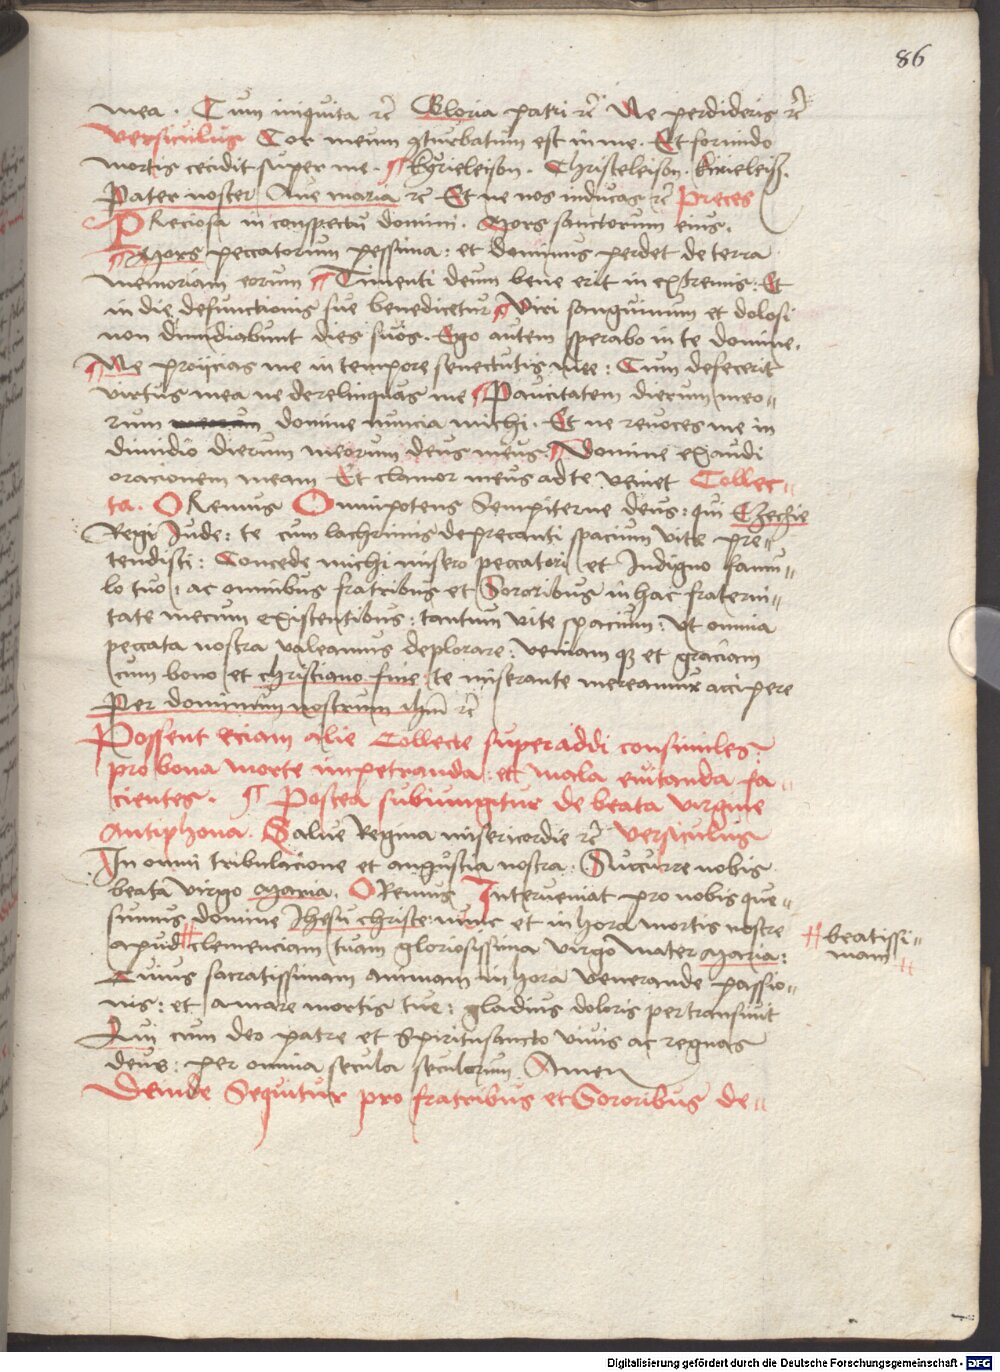 86
mea . Cum iniquita rc̄ Gloria patri rc̄ Ne perdideris rc̄
Versiculus Cor meum ꝯturbatum est in me . Et formido
mortis cecidit super me . ¶ Kyrieleison . Christeleison . Kirieleiſ.
Pater noster Aue maria rc̄ Et ne nos inducas rc̄ Preces
PReciosa in conspectu domini . Mors sanctorum eius .
¶ Mors peccatorum pessima : et dominus perdet de terra
memoriam eorum ¶ Timenti deum bene erit in extremis : Et
in die defunctionis sue benedicetur ¶ Viri sanguinum et dolosi
non dimidiabunt dies suos . Ego autem sperabo in te domine .
¶ Ne proijcias me in tempore senectutis mee : Cum defecerit
virtus mea ne derelinquas me ¶ Paucitatem dierum meo=
rum domine nuncia michi . Et ne reuoces me in
dimidio dierum meorum deus meus . ¶ Domine exaudi
oracionem meam Et clamor meus ad te veniet Collec=
ta . ORemus Omnipotens Sempiterne deus : qui Ezechie
Regi Jude : te cum lachrimis deprecanti spacium vite pre=
tendisti : Concede michi misero peccatori et Indigno famu=
lo tuo , ac omnibus fratribus et Sororibus in hac fraterni=
tate mecum existentibus : tantum vite spacium : vt omnia
peccata nostra valeamus deplorare : veniam qȝ et graciam
cum bono et christiano fine te miserante mereamur accipere
Per dominum nostrum ihm̄ rc̄
Possent eciam alie Collecte superaddi consimiles :
pro bona morte impetranda : et mala euitanda fa=
cientes . ¶ Postea subiungitur de beata virgine
Antiphona . Salue Regina misericordie rc̄ Versiculus
In omni tribulacione et angustia nostra . Succurre nobis
beata virgo Maria . ORemus Interueniat pro nobis que=
sumus domine Jhesu christe : nunc et in hora mortis nostre
apud # clemenciam tuam gloriosissima virgo mater Maria :
# beatissi=
mam #
Cuius sacratissimam animam in hora venerande passio=
nis : et amare mortis tue : gladius doloris pertransiuit
Qui cum deo patre et Spiritusancto viuis ac regnas
deus : per omnia secula seculorum Amen
Deinde Sequitur pro fratribus et Sororibus de=
Digitalisierung gefördert durch die Deutsche Forschungsgemeinschaft - DFG